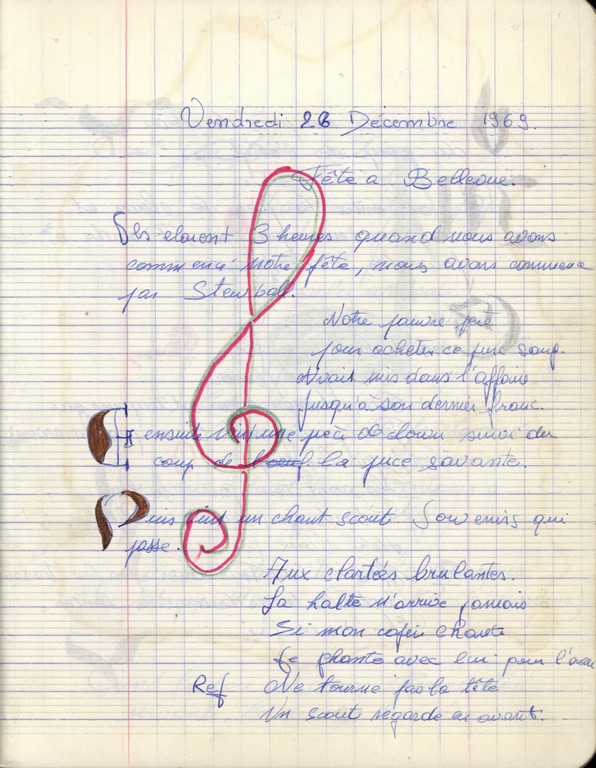 Vendredi 26 Décembre 1969.
Fête a Bellevue.
Ils etaient 3 heures quand nous avons
commencé notre fête, nous avons commencé
par Stewball.
Notre pauvre père
pour acheter ce pur sang.
Avait mis dans l'affaire
Jusqu'à son dernier franc.
Et ensuite vint une pièce de clown suivi du
coup de la puce savante.
Puis vint un chant scout. Souvenirs qui
passe.
Aux clartées brulantes.
La halte n'arrive jamais
Si mon copain chante
Je chante avec lui pour l'
Ref Ne tourne pas la tête
Un scout regarde en avant.